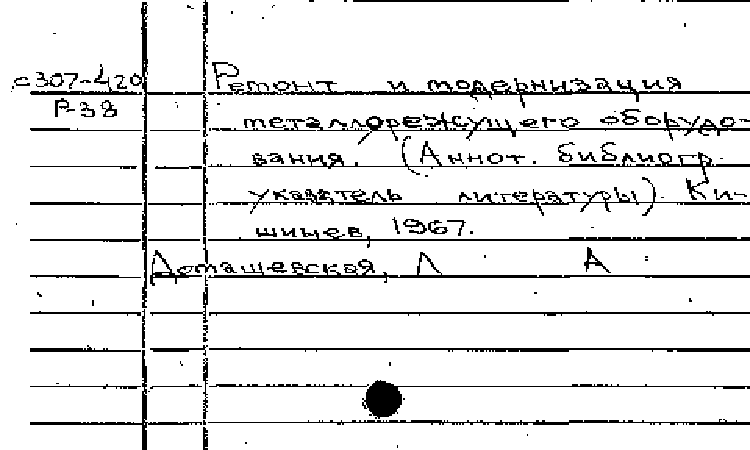 с307-420 Ремонт и модернизация
Р-38 металлорежущего оборудо-
вания. (Аннот. библиогр.
указатель литературы). Ки-
шинев, 1967.
Доташевская, Л А